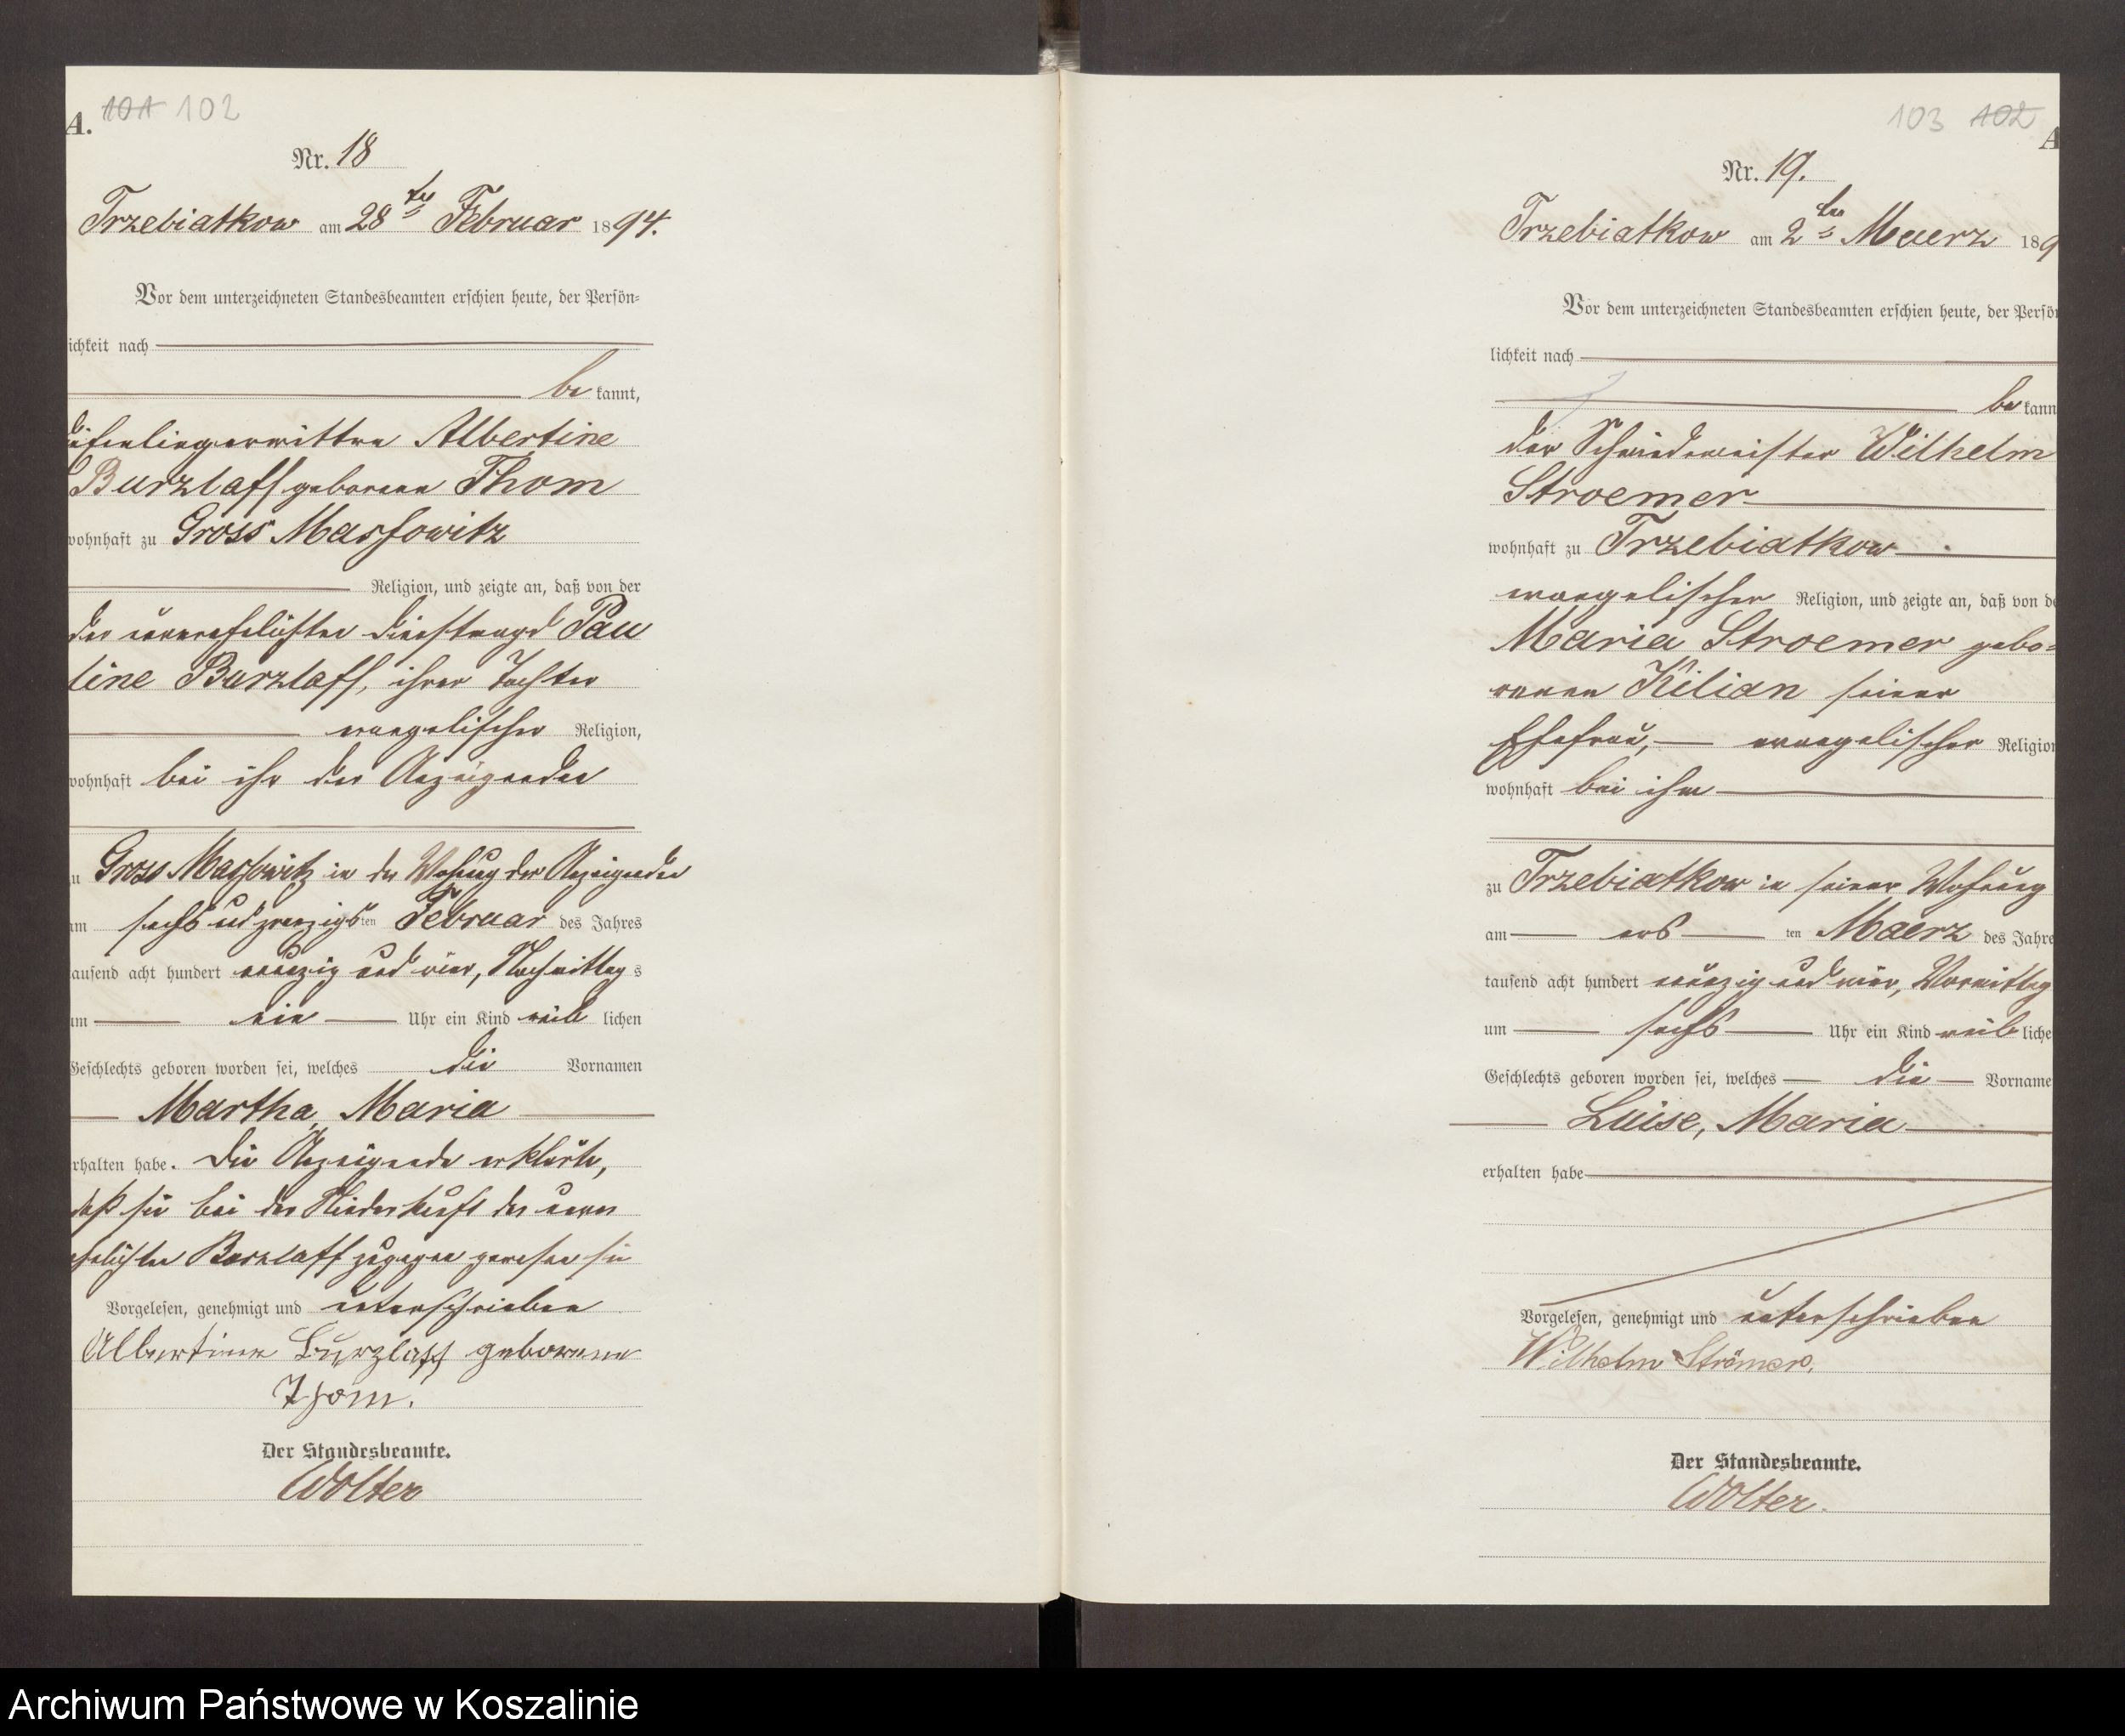 A. 101 102
Nr. 18
Trzebiatkow am 28ten Februar 1894.
Vor dem unterzeichneten Standesbeamten erschien heute, der Persön-
ichkeit nach
be kannt,
Albertine
Burzlaff geborene Thom
wohnhaft zu Gross Massowitz
Religion, und zeigte an, daß von der
der unverehelichten Dienstmagd Pau
line Burzlaff, ihrer Tochter
evangelischer Religion,
wohnhaft bei ihr der Anzeigenden
zu Gross Massowitz in der Wohnung der Anzeigenden
am sechs und zwanzigsten Februar des Jahres
tausend acht hundert neunzig und vier, Nachmittags
um ein Uhr ein Kind weib lichen
Geschlechts geboren worden sei, welches die Vornamen
Martha, Maria
erhalten habe. Die Anzeigende erklärte,
daß sie bei der Niederkunft der unver
ehelichten Burzlaff zugegen gewesen sei
Vorgelesen, genehmigt und unterschrieben
Albertine Burzlaff geborene
Thom.
Der Standesbeamte.
Wolter
103 102 A
Nr. 19.
Trzebiatkow am 2ten Maerz 189
Vor dem unterzeichneten Standesbeamten erschien heute, der Persön
lichkeit nach
be kann
der Schmiedemeister Wilhelm
Stroemer
wohnhaft zu Trzebiatkow
evangelischer Religion, und zeigte an, daß von de
Maria Stroemer gebo-
renen Kilian seiner
Ehefrau, evangelischer Religion
wohnhaft bei ihm
zu Trzebiatkow in seiner Wohnung
am ers ten Maerz des Jahre
tausend acht hundert neunzig und vier, Vormittag
um sechs Uhr ein Kind weib liche
Geschlechts geboren worden sei, welches die Vorname
Luise, Maria
erhalten habe
Vorgelesen, genehmigt und unterschrieben
Wilhelm Strömer.
Der Standesbeamte.
Wolter.
Archiwum Państwowe w Koszalinie